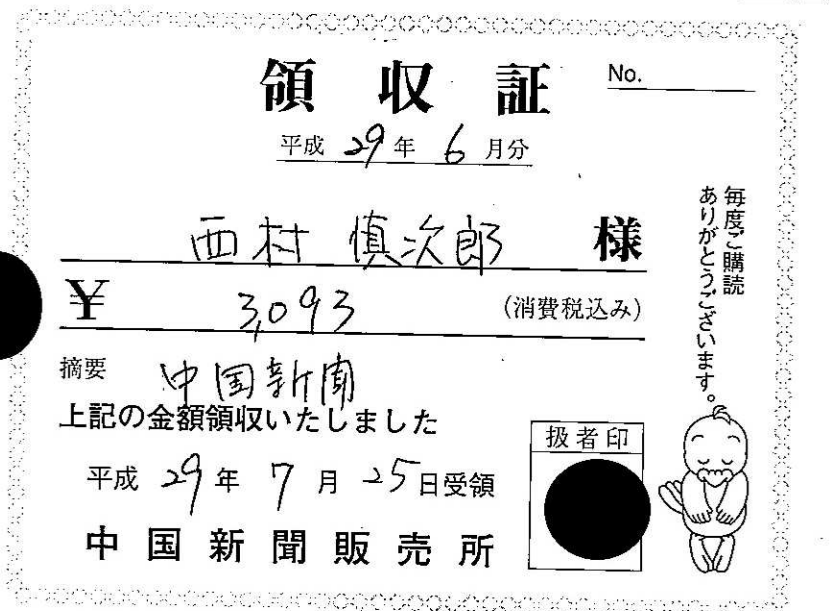 領収証
No.
平成 29年 6月分
西村 慎次郎 様
¥ 3,093 (消費税込み)
摘要 中国新聞
上記の金額領収いたしました
平成 29年 7月 25日受領
中国新聞販売所
扱者印
毎度ご購読
ありがとうございます。